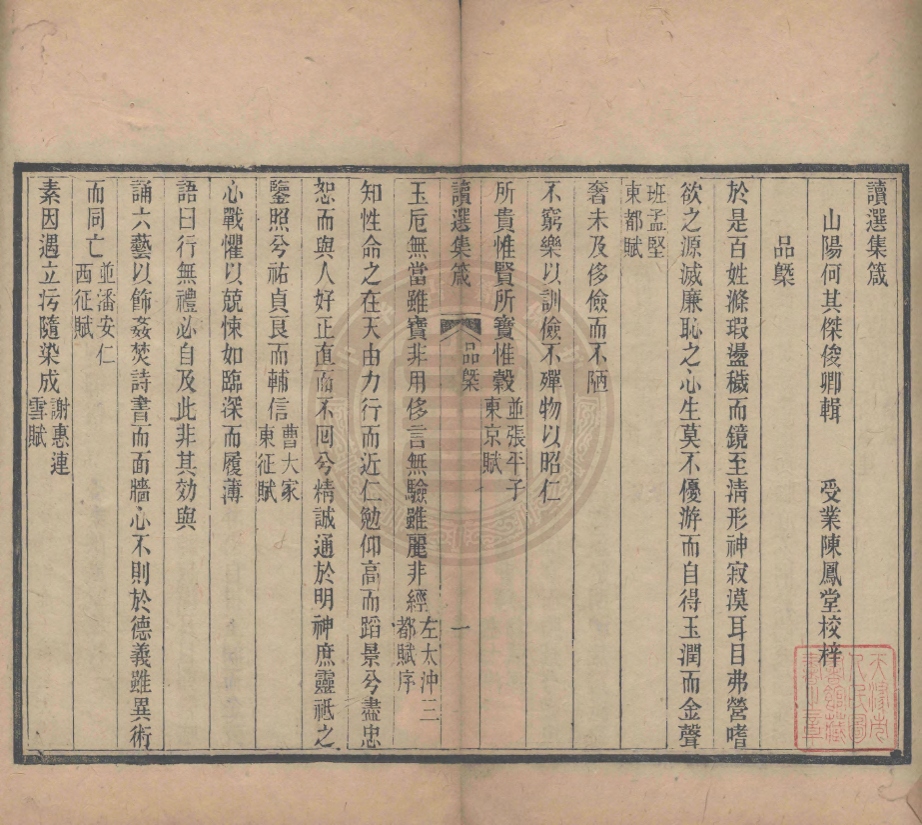 讀選集箴
山陽何其傑俊卿輯　受業陳鳳堂校梓
品槩
於是百姓滌瑕盪穢而鏡至淸形神寂漠耳目弗營嗜
欲之源滅廉恥之心生莫不優游而自得玉潤而金聲
班孟堅
東都賦
奢未及侈儉而不陋
不窮樂以訓儉不殫物以昭仁
所貴惟賢所寶惟穀並張平子
東京賦
讀選集箴　品槩　一
玉卮無當雖寶非用侈言無驗雖麗非經左太沖三
都賦序
知性命之在天由力行而近仁勉仰高而蹈景兮盡忠
恕而與人好正直而不回兮精誠通於明神庶靈祗之
鑒照兮祐貞良而輔信曹大家
東征賦
心戰懼以兢悚如臨深而履薄
語曰行無禮必自及此非其効與
誦六藝以飾姦焚詩書而面牆心不則於德義雖異術
而同亡並潘安仁
西征賦
素因遇立污隨染成謝惠連
雪賦
天津市
人民圖
書館藏
書之章